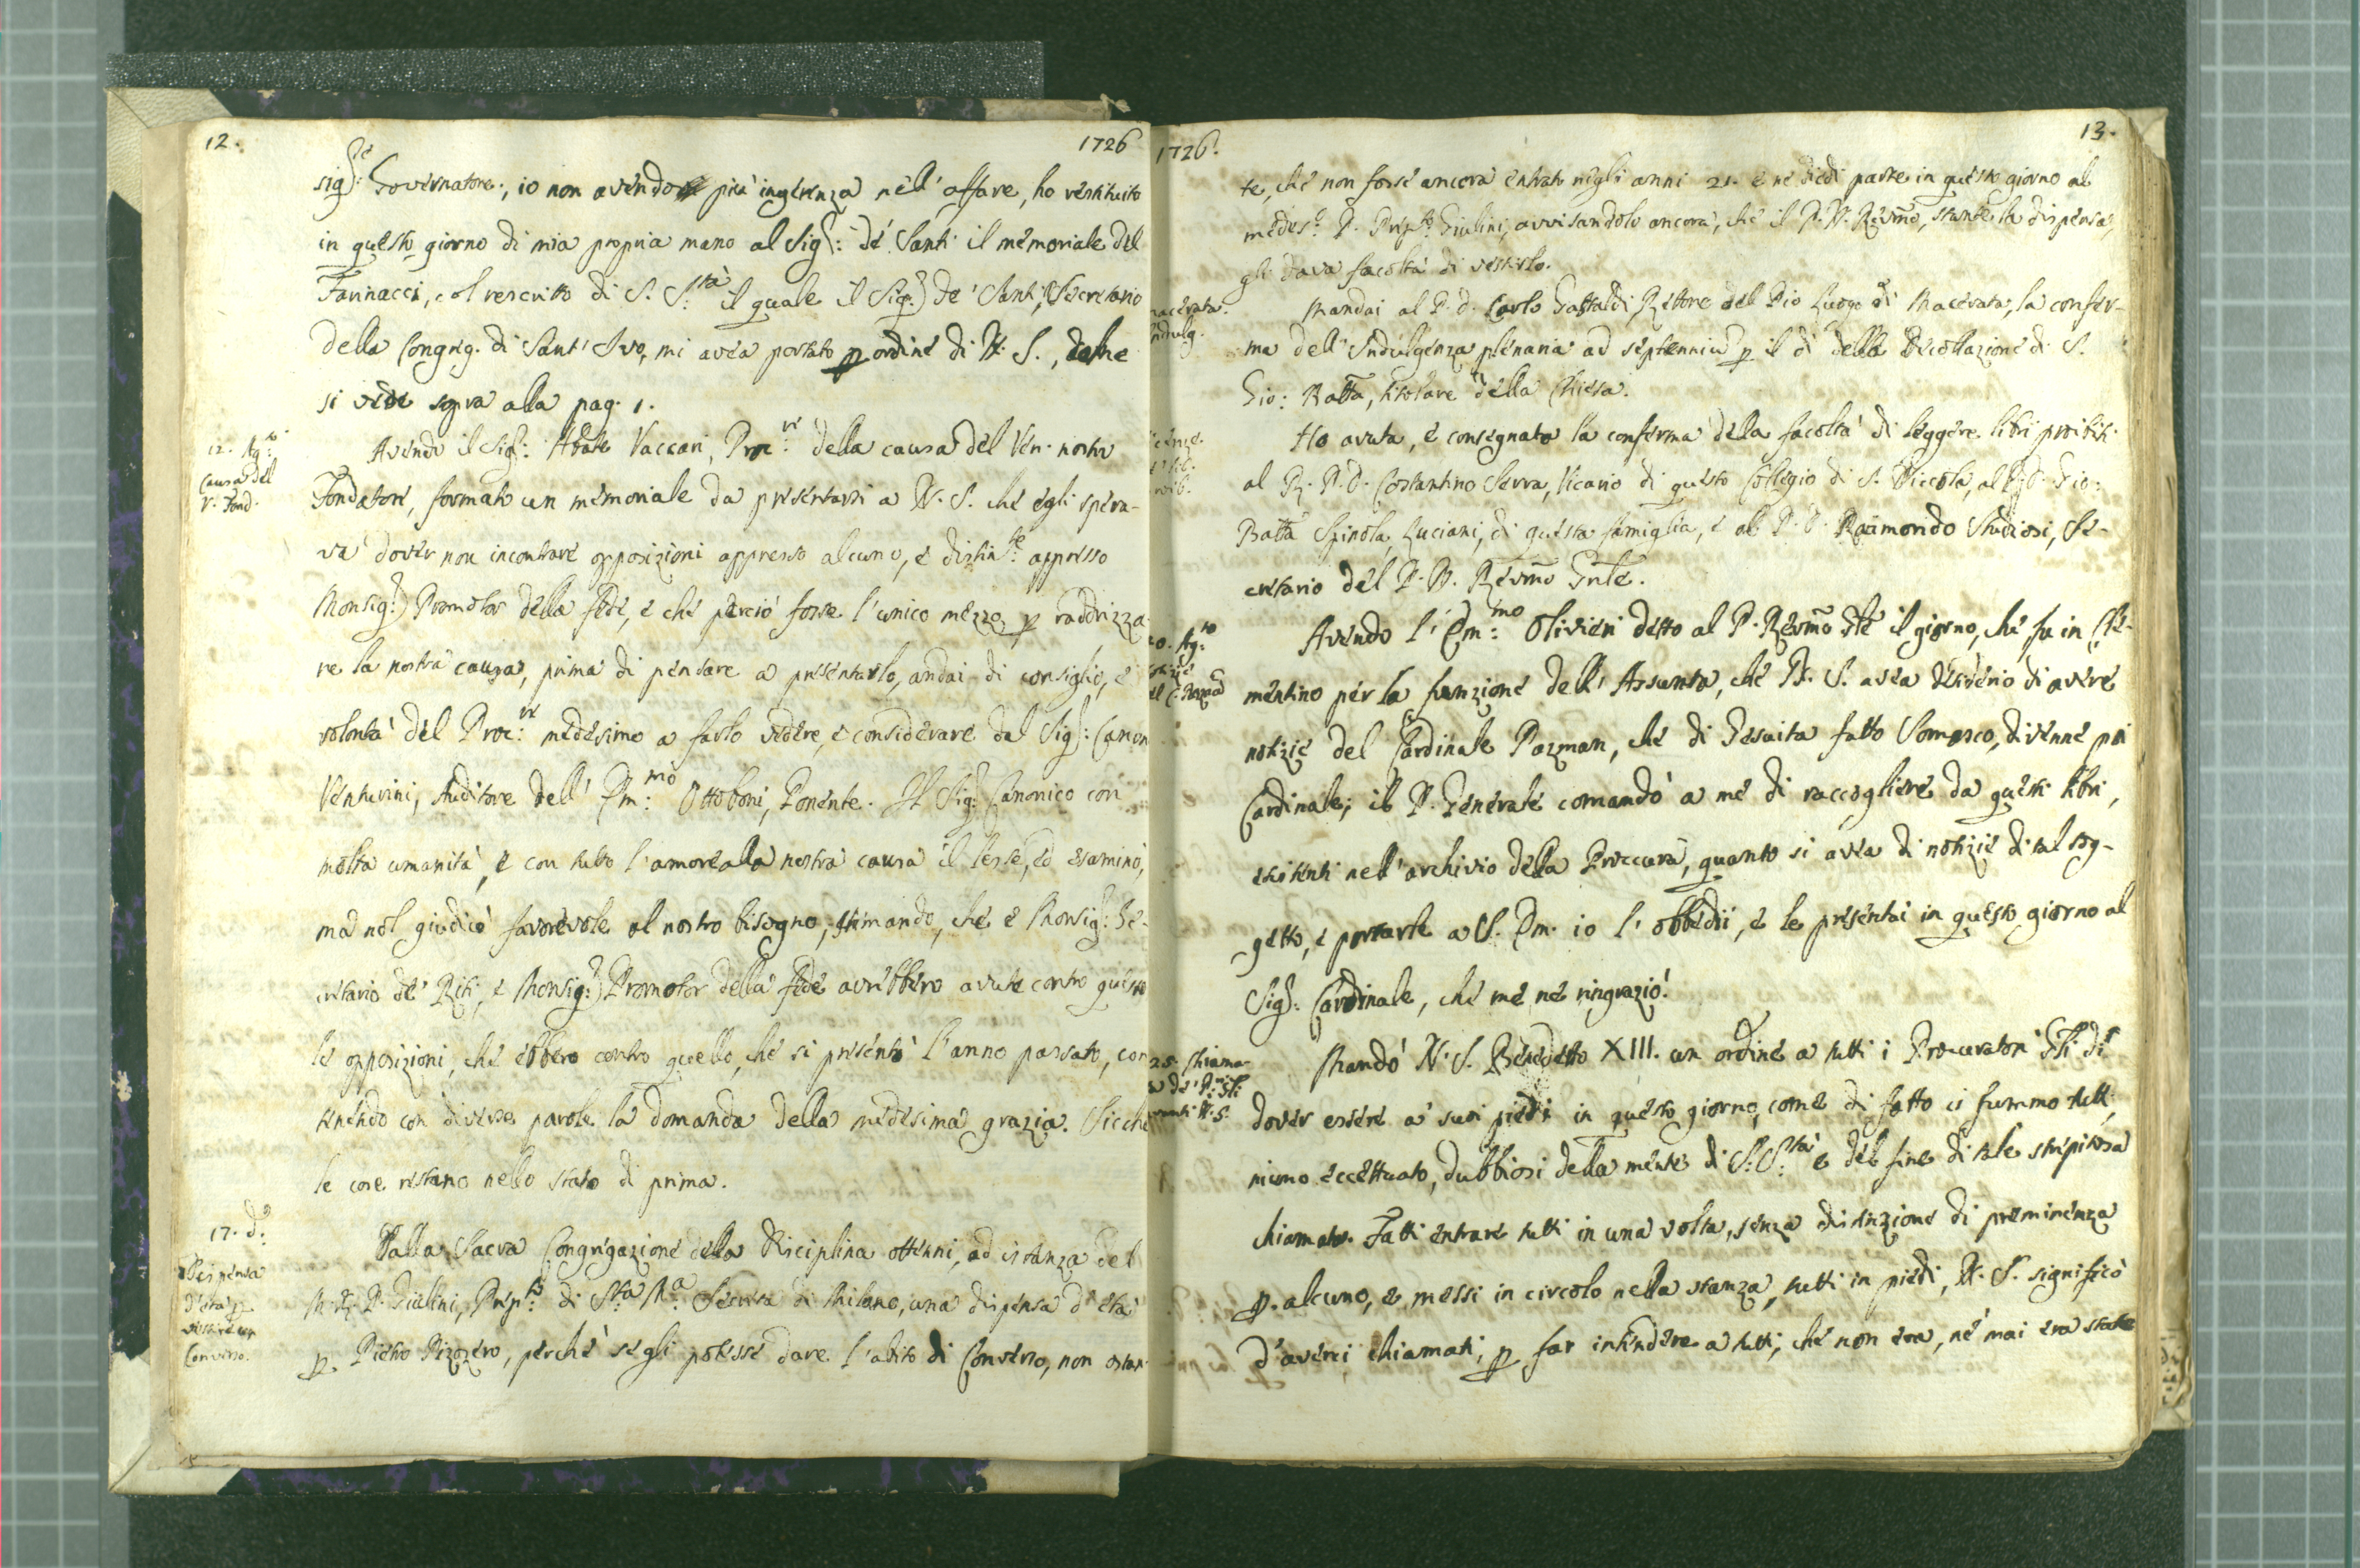 12.
1726
Sig.re Governatore, io non avendo più ingerenza nell' affare, ho restituito
in questo giorno di mia propria mano al Sig.r de' Santi il memoriale del
Farinacci, col rescritto di S. S.tà il quale il Sig.r de' Santi, Secretario
della Congreg. di Sant' Ivo, mi avea portato p ordine di N. S., come
si vede sopra alla pag. 1.
12. Ag.to
Causa del
V. Fond.
Avendo il Sig.r Abate Vaccari, Proc.re della causa del Ven. nostro
Fondatore, formato un memoriale da presentarsi a N. S. che egli spera-
va dover non incontrare opposizioni appresso alcuno, e distin.te appresso
Monsig.r Promotor della fede, e che perciò fosse l' unico mezzo p raddrizza-
re la nostra causa, prima di pensare a presentarlo, andai di consiglio, e
volontà del Proc.re medesimo a farlo vedere, e considerare dal Sig.r Canon
Venturini, Auditore dell' Em.mo Ottoboni, Ponente. Il Sig.r Canonico con
molta umanità, e con tutto l' amore alla nostra causa il lesse, ed esaminò,
ma nol giudicò favorevole al nostro bisogno, stimando, che e Monsig.r Se-
cretario de' Riti, e Monsig.r Promotor della fede avrebbero avute contro questo
le opposizioni, che ebbero contro quello, che si presentò l' anno passato, con
tenendo con diverse parole la domanda della medesima grazia. Sicchè
le cose restano nello stato di prima.
17. d.o
Dispensa
d' età p
vestire un
Converso.
Dalla Sacra Congregazione della Disciplina ottenni, ad istanza del
M. R. P. Giulini, Prep.to di S.ta M.a Secreta di Milano, una dispensa d' età
p. Pietro Pizozero, perchè se gli potesse dare l' abito di Converso, non ostan-
1726.
13.
te, che non fosse ancora entrato negli anni 21. e ne diedi parte in questo giorno al
medes.o P. Prep.to Giulini, avvisandolo ancora, che il P. N. Revmo, stante la dispensa,
gli dava facoltà di vestirlo.
Macerata.
Indulg.
Mandai al P. d. Carlo Gastaldi Rettore del Pio Luogo di Macerata, la confer-
ma dell' Indulgenza plenaria ad septennium p il dì della Decollazione di S.
Gio: Batta, titolare della Chiesa.
Ho avuta, e consegnata la conferma della facoltà di leggere libri proibiti
al R. P. D. Costantino Serra, Vicario di questo Collegio di S. Niccola, al P. D. Gio:
Batta Spinola, Luciani, di questa famiglia, e al P. D. Raimondo Studiosi, Se-
cretario del P. N. Revmo Gnle.
20. Ag.to
Notizie
del C. Pazman
Avendo l' Em.mo Olivieri detto al P. Revmo Gle il giorno, che fu in Cle-
mentino per la funzione dell' Assunta, che N. S. avea desiderio di avere
notizie del Cardinale Pazman, che di Gesuita fatto Somasco, divenne poi
Cardinale; il P. Generale comandò a me di raccogliere da questi libri,
esistenti nell' archivio della Proccura, quanto si avea di notizie di tal sog-
getto, e portarle a S. Em. io l' obbedii, e le presentai in questo giorno al
Sig.r Cardinale, che me ne ringraziò.
25. Chiama-
ta de' P.ri Gli
avanti N. S.
Mandò N. S. Benedetto XIII. un ordine a tutti i Procuratori Gli di
dover essere a' suoi piedi in questo giorno, come di fatto ci fummo tutti,
niuno eccettuato, dubbiosi della mente di S. S.tà e del fine di tale strepitosa
chiamata. Fatti entrare tutti in una volta, senza distinzione di preminenza
p. alcuno, e messi in circolo nella stanza, tutti in piedi, N. S. significò
d' averci chiamati, p far intendere a tutti, che non era, nè mai era stata